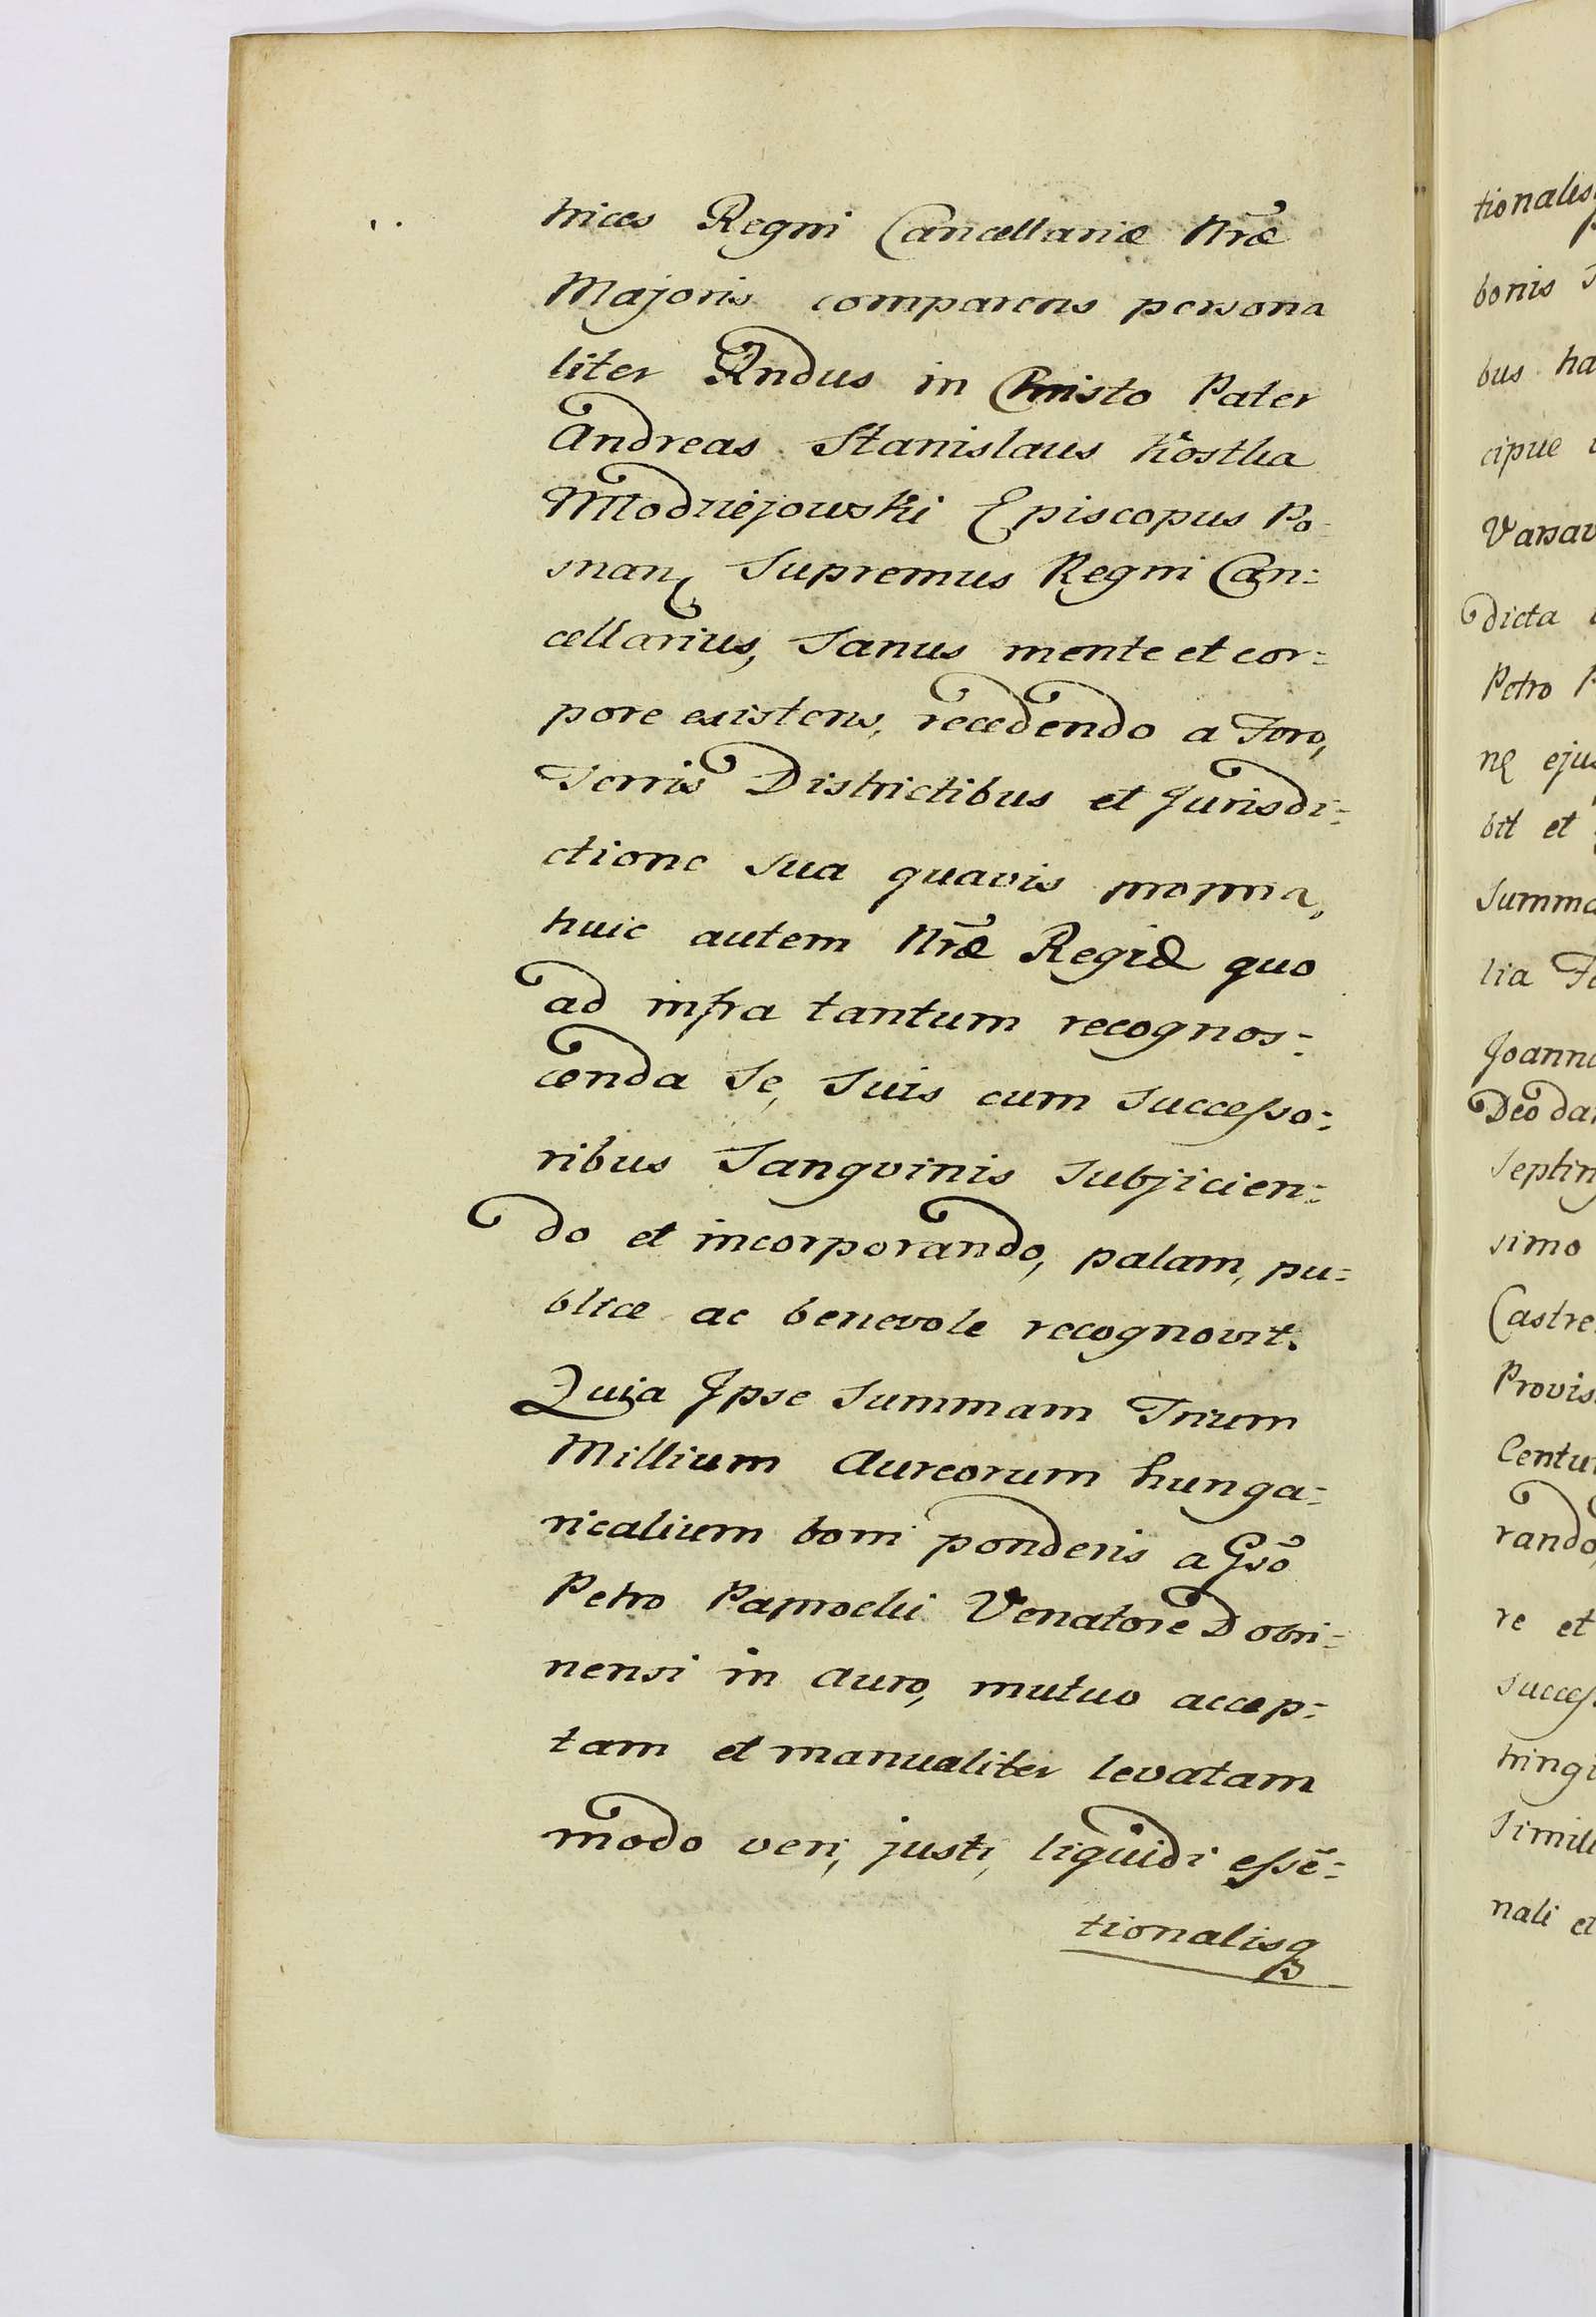 trices Regni Cancellariæ Nræ
Majoris comparens persona
liter Rndus in Christo Pater
Andreas Stanislaus Kostka
Młodziejowski Episcopus Po
snan, Supremus Regni Can:
cellarius, Sanus mente et cor:
pore existens, recedendo a Foro,
Terris Districtibus et Jurisdi:
ctione sua quavis propria,
huic autem Nræ Regiæ quo
ad infra tantum recognos:
cenda Se, Suis cum Successo:
ribus Sangvinis Subjicien:
do et incorporando, palam, pu:
blice ac benevole recognovit.
Quia Ipse Summam Trium
Millium Aureorum hunga:
ricalium boni ponderis a Gso
Petro Paprocki Venatore Dobri:
nensi in auro, mutuo accep:
tam et manualiter levatam
modo veri, justi, liquidi essē:
tionalisq
tionalisq
bonis
bus ha
cipue
Varsav
dicta
Petro P
nę eju
bit et
Summa
lia
Joanne
Deo da
Septin
simo
Castre
Provis
Centu
rando
re et
succes
tringi
Simili
nali et